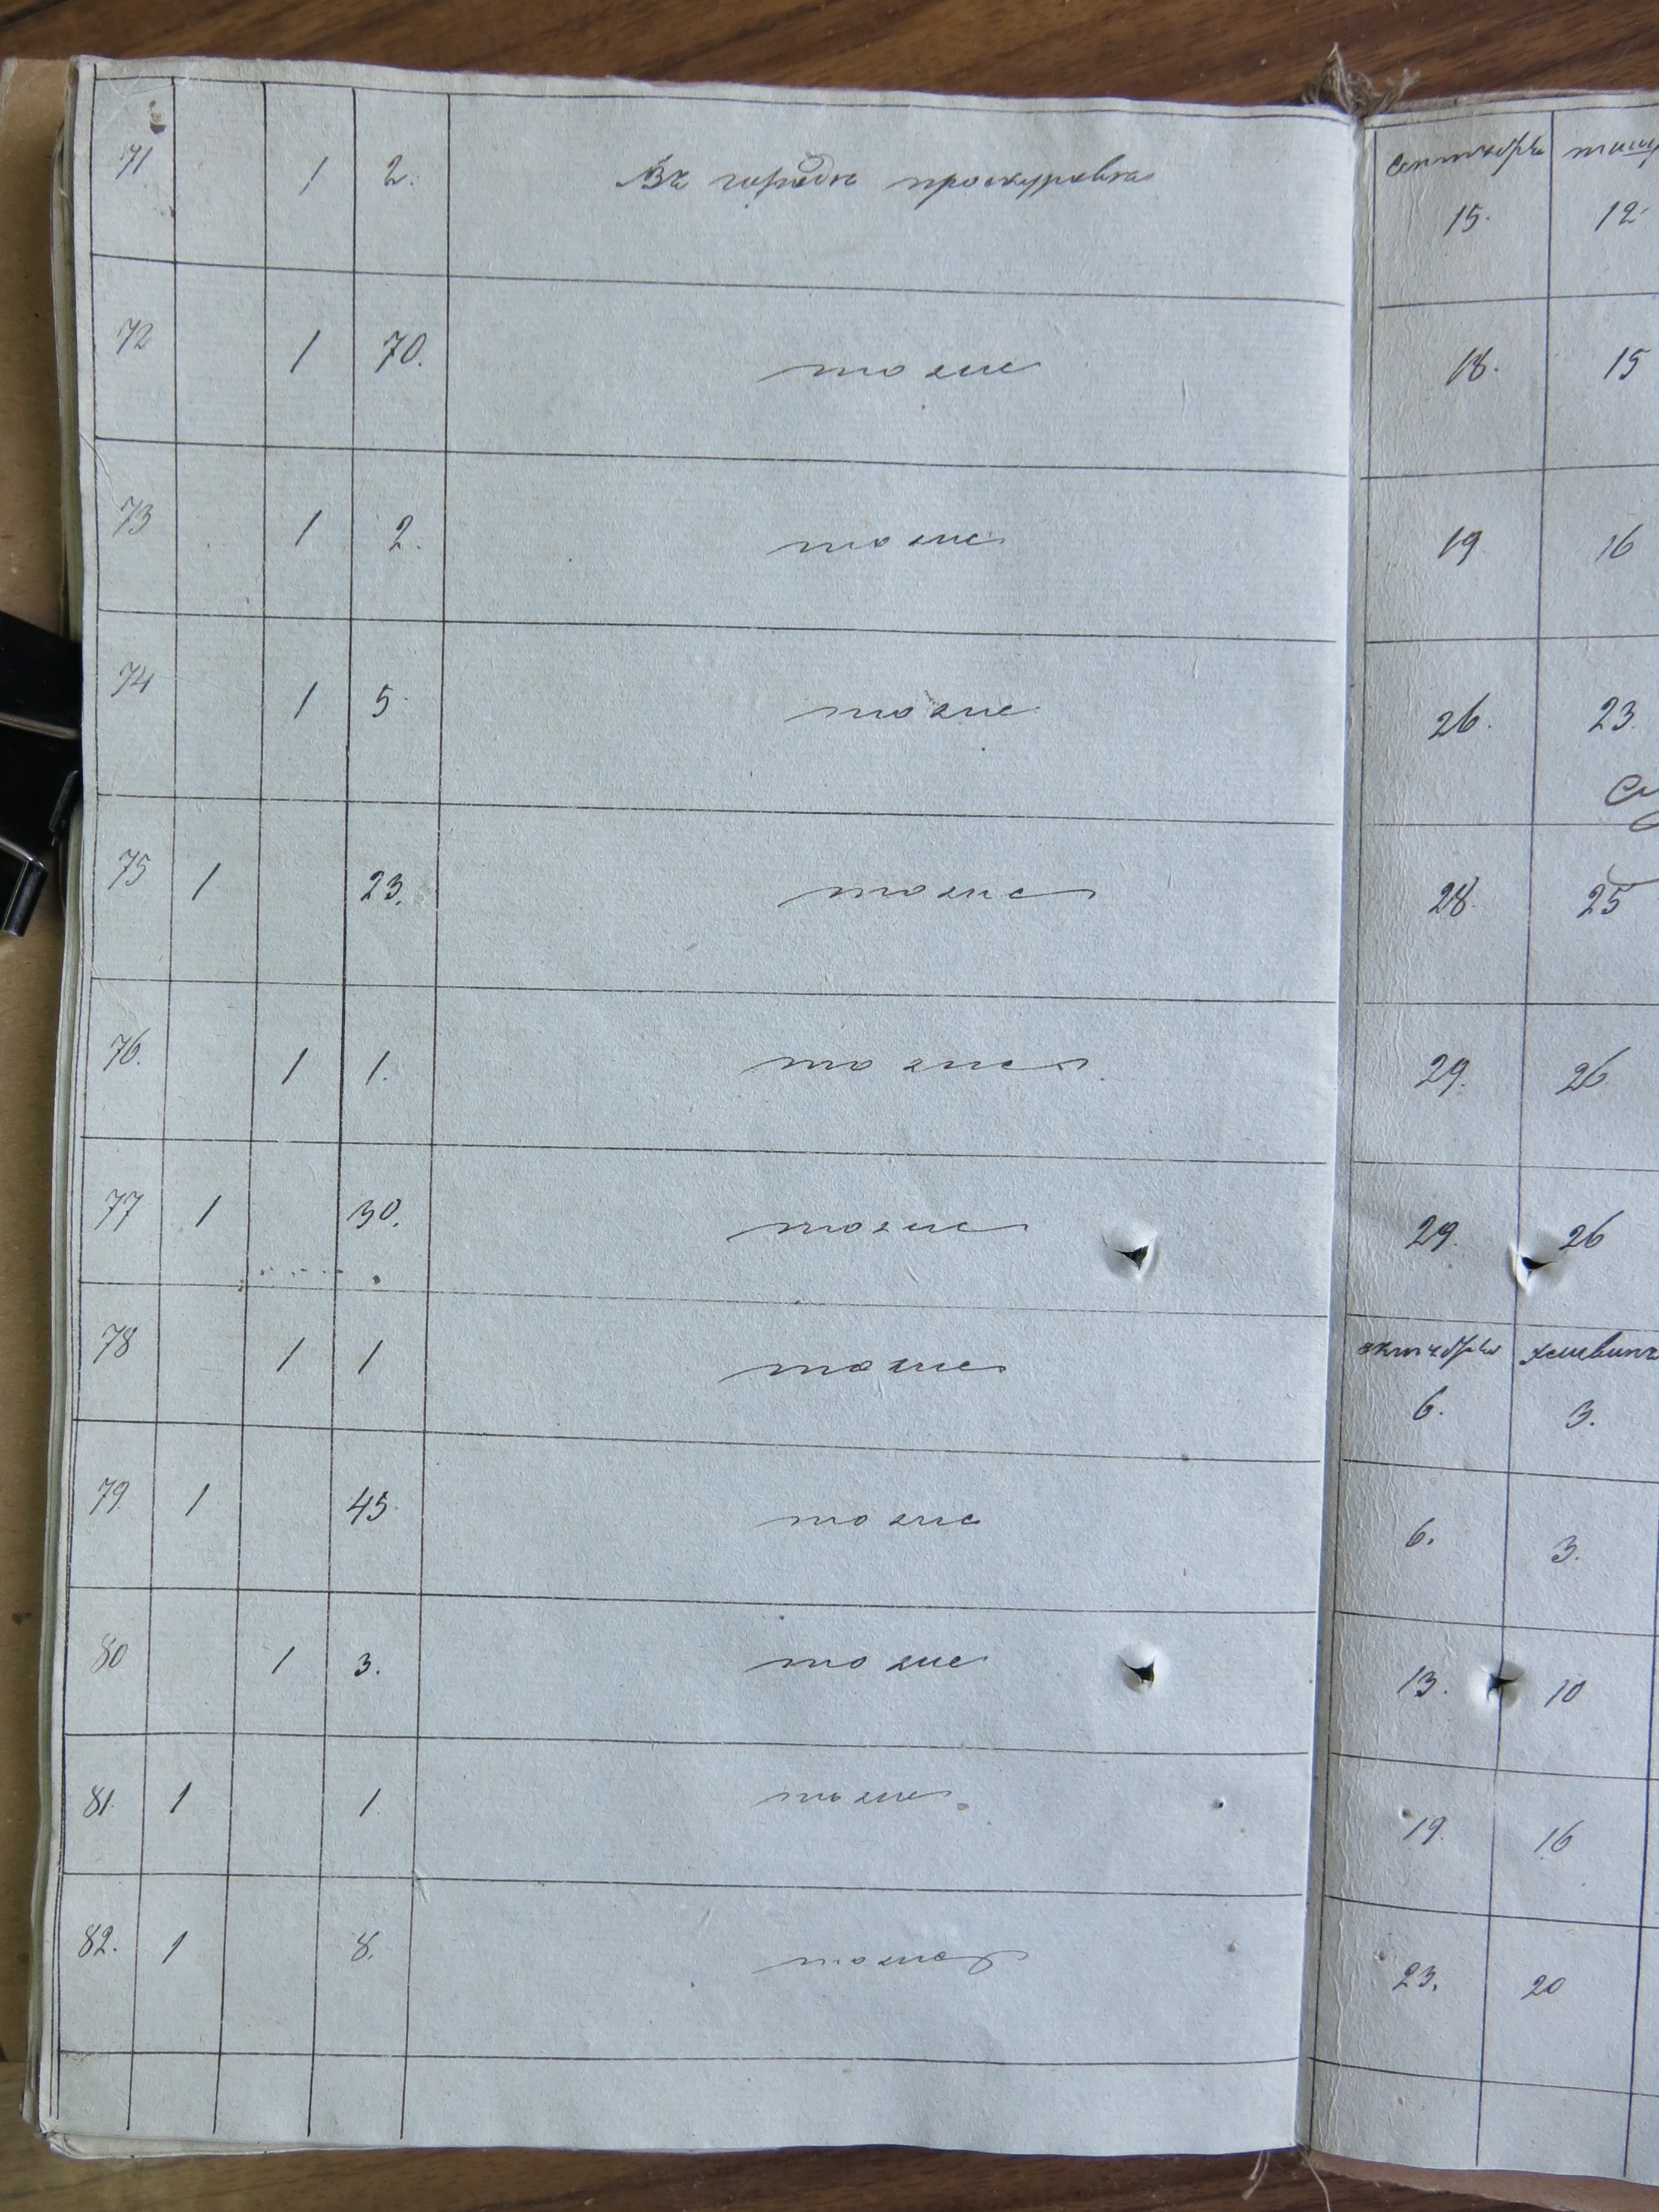 71 1 2. Въ городѣ проскуровѣ
сентября
15. 12
72 1 70. тоже 18. 15
73 1 2. тоже 19 16
74 1 5. тоже 26. 23.
75 1 23. тоже 28. 25
76. 1 1. тоже 29. 26
77 1 30. тоже 29. 26
78 1 1 тоже
октября хешвинъ
6. 3.
79 1 45. тоже 6. 3.
80 1 3. тоже 13. 10
81. 1 1. тоже 19. 16
82. 1 8. 23. 20